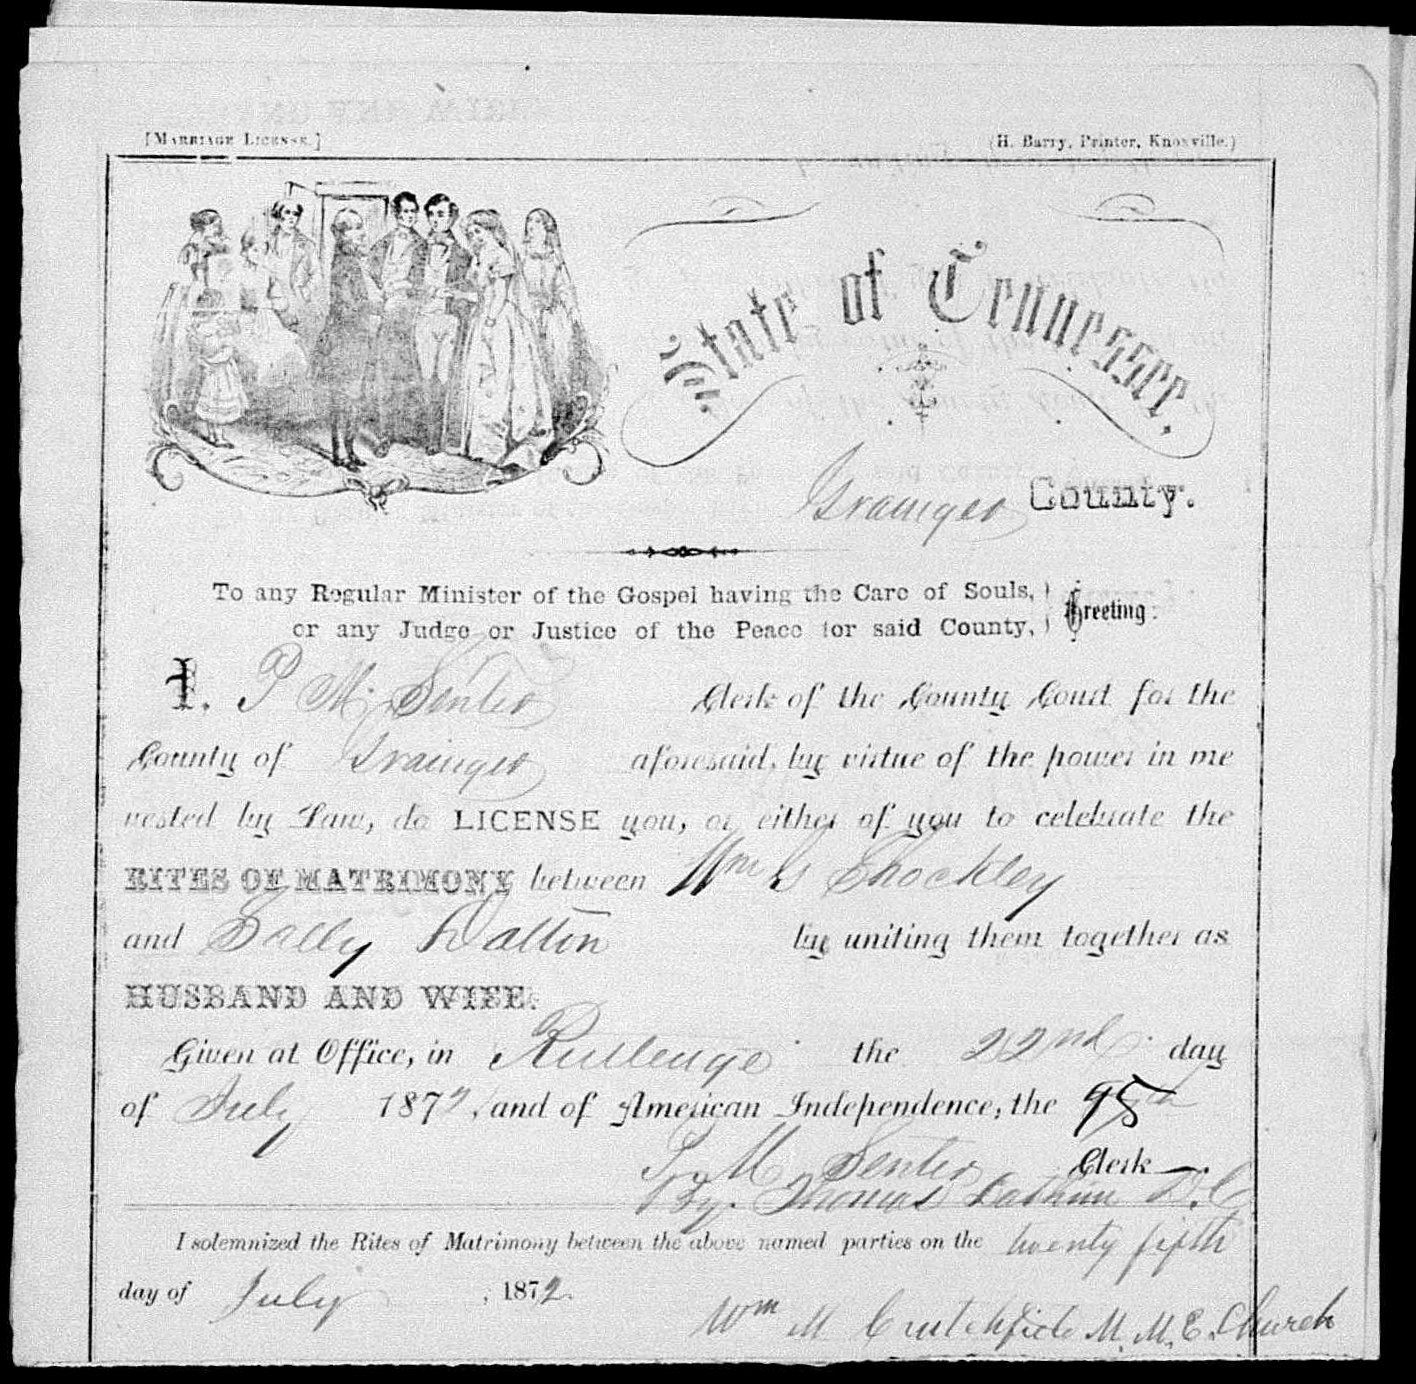 [MARRIAGE LICENSE.]
(H. Barry, Printer, Knoxville.)
State of Tennessee,
Grainger County.
To any Regular Minister of the Gospel having the Care of Souls,
or any Judge or Justice of the Peace for said County,
Greeting:
I, P M. Senter Clerk of the County Court for the
County of Grainger aforesaid, by virtue of the power in me
vested by Law, do LICENSE you, or either of you to celebrate the
RITES OF MATRIMONY between Wm G Shockley
and Sally Dalton by uniting them together as
HUSBAND AND WIFE.
Given at Office, in Rutledge the 22nd day
of July 1872, and of American Independence, the 95th
P. M Senter Clerk
By. Thomas D.C
I solemnized the Rites of Matrimony between the above named parties on the twenty fifth
day of July, 1872.
Wm M Crutchfield M. M. E. Church